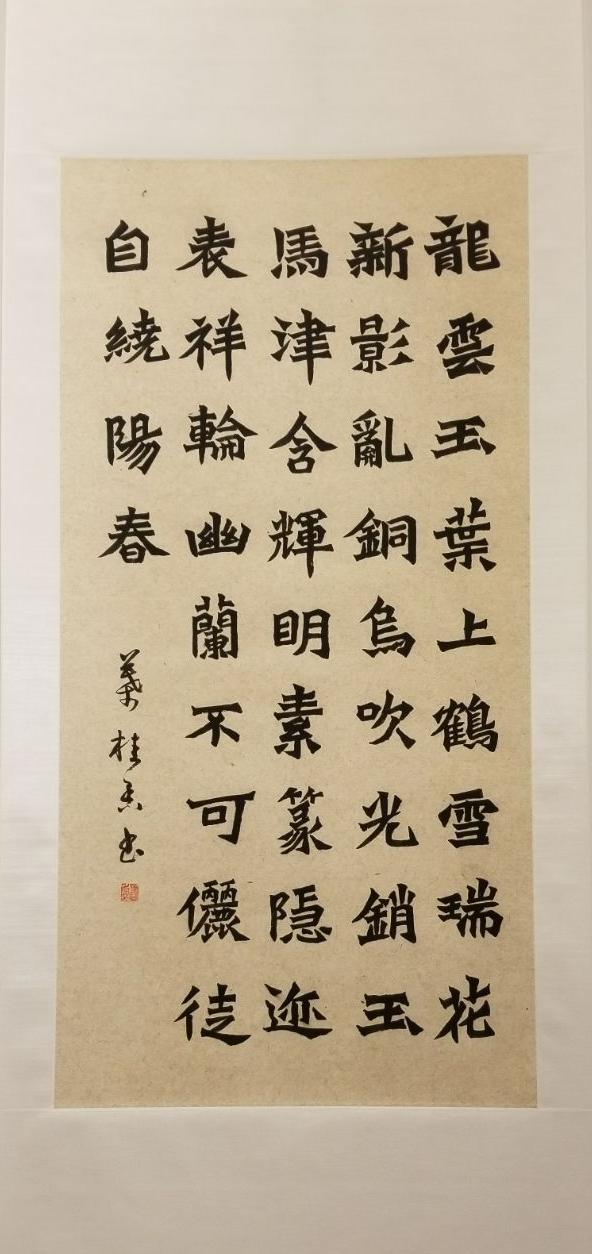 龍雲玉葉上鶴雪瑞花
新影亂銅烏吹光銷玉
馬津含輝明素篆隠迩
表祥輪幽蘭不可儷徒
自繞陽春
葉桂香书